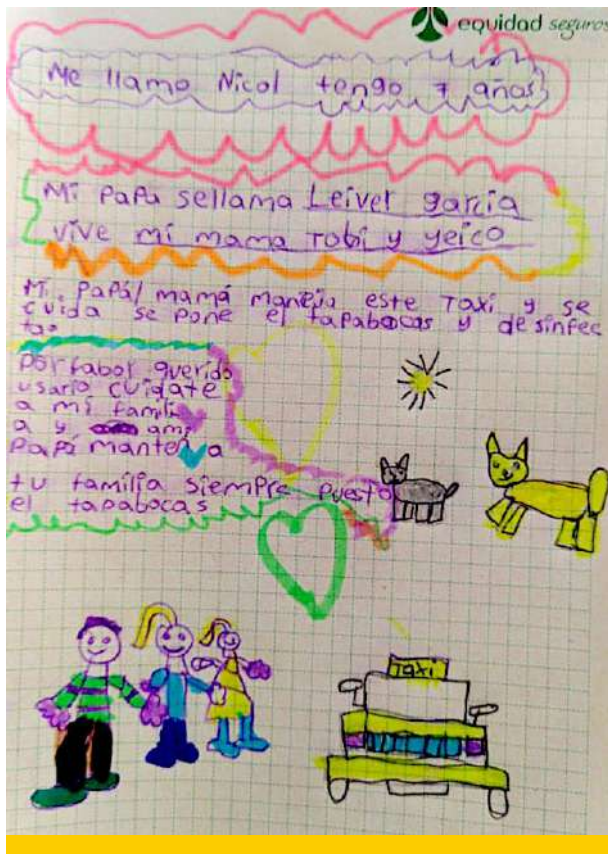 equidad seguros
Me llamo Nicol tengo 7 años
Mi Papa sellama Leivel garcia
vive mi mama Tobi y yeico
Mi Papá/mamá maneja este Taxi y se
cuida se pone el tapabocas y desinfec
tao
Porfabor querido
usario cuidate
a mi famili
a y ami
Papi manten a
tu familia siempre puesto
el tapabocas
Taxi